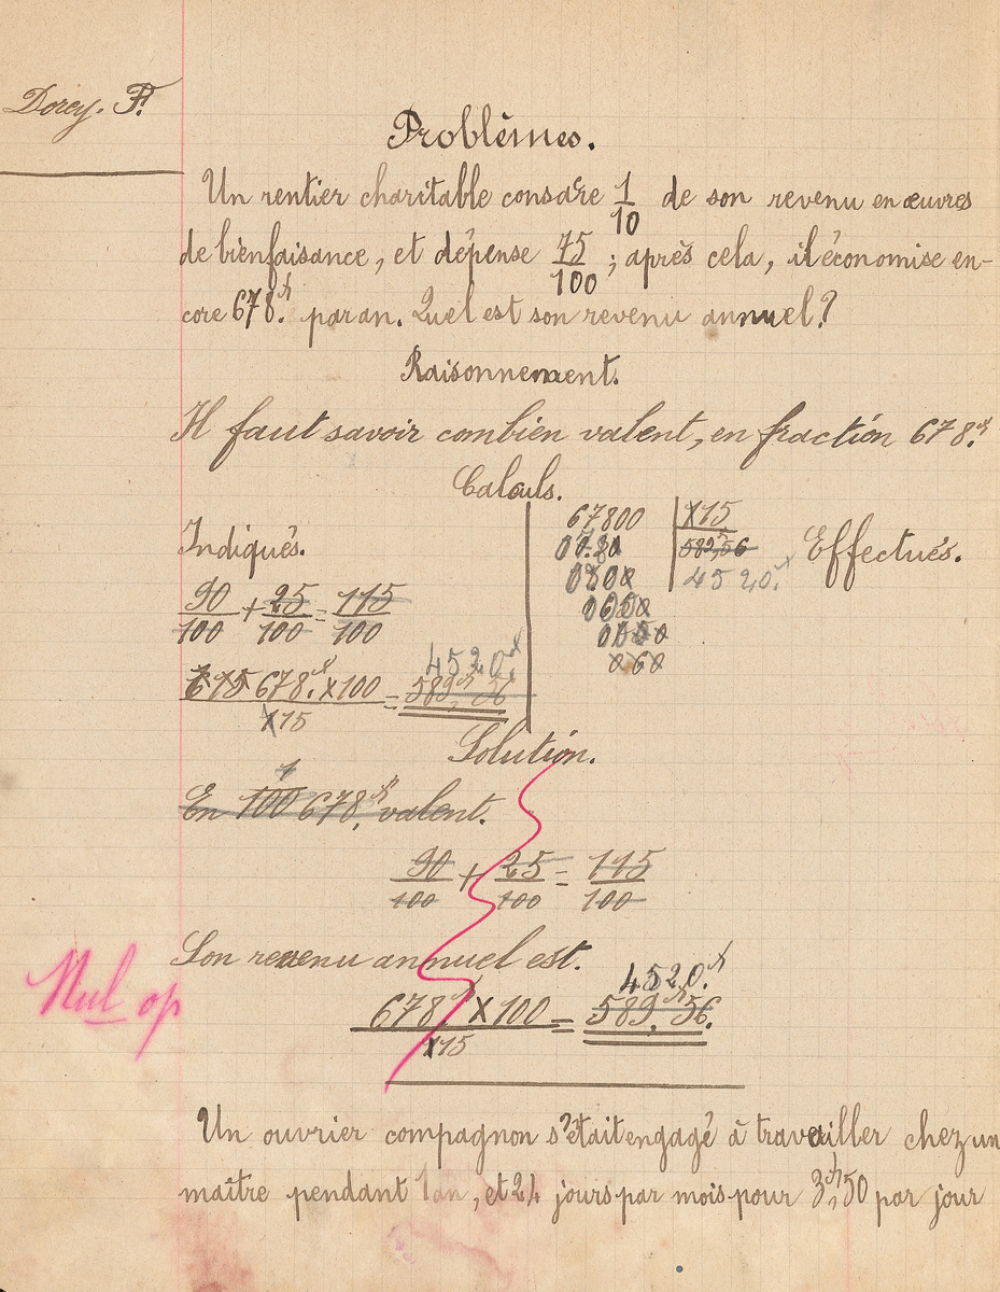 Dorcy. F.
Problèmes.
Un rentier charitable consacre 1/10 de son revenu en œuvres
de bienfaisance, et dépense 75/100 ; après cela, il économise en-
core 678.f par an. Quel est son revenu annuel?
Raisonnement.
Il faut savoir combien valent, en fraction 678.f
Calculs.
Indiqués.
90/100 + 25/100 = 115/100
678.f x 100 / 115 = 589,f 56
4520.f
67800 | 115
589,f56
4520.f
Effectués.
Solution.
En 1/100 678,f valent.
90/100 + 25/100 = 115/100
Son revenu annuel est.
4520.f
678f x 100 / 115 = 589,f 56.
Nul op
Un ouvrier compagnon s'était engagé à travailler chez un
maître pendant 1 an, et 24 jours par mois pour 3,f50 par jour